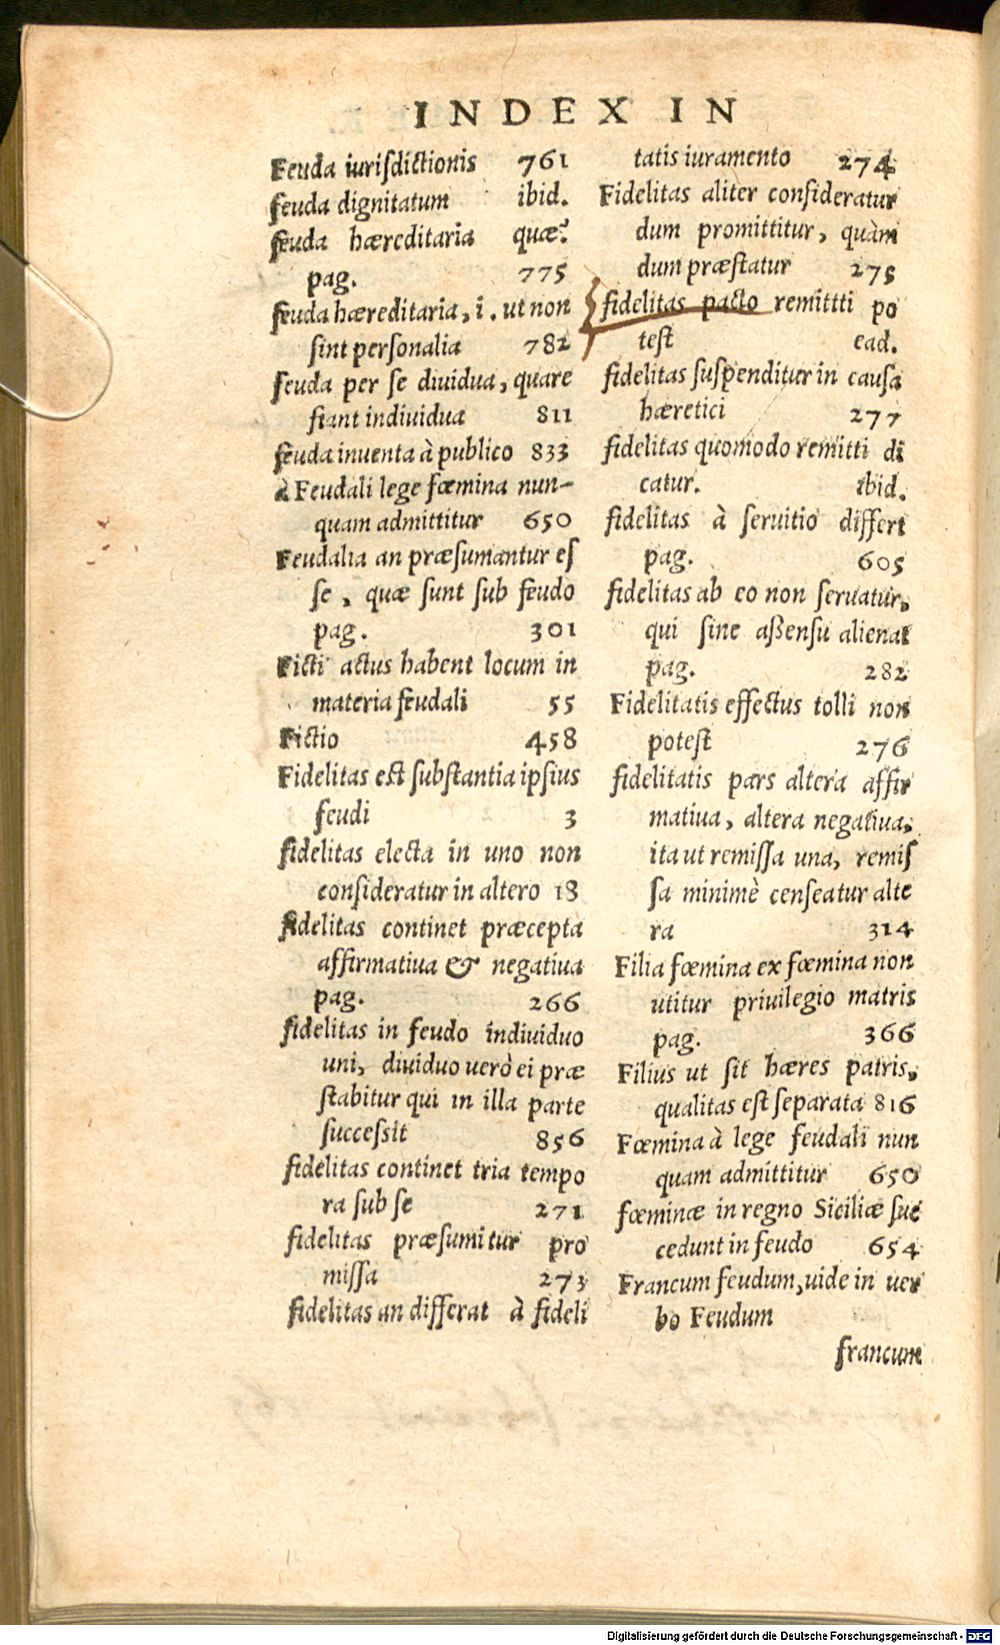 INDEX IN
Feuda iurisdictionis 761
feuda dignitatum ibid.
feuda hæreditaria quæ?
pag. 775
feuda hæreditaria, i. ut non
sint personalia 782
feuda per se diuidua, quare
fiant indiuidua 811
feuda inuenta à publico 833
à Feudali lege fœmina nun-
quam admittitur 650
Feudalia an præsumantur es
se, quæ sunt sub feudo
pag. 301
Ficti actus habent locum in
materia feudali 55
Fictio 458
Fidelitas est substantia ipsius
feudi 3
fidelitas electa in uno non
consideratur in altero 18
fidelitas continet præcepta
affirmatiua & negatiua
pag. 266
fidelitas in feudo indiuiduo
uni, diuiduo uerò ei præ
stabitur qui in illa parte
successit 856
fidelitas continet tria tempo
ra sub se 271
fidelitas præsumitur pro
missa 273
fidelitas an differat à fideli
tatis iuramento 274
Fidelitas aliter consideratur
dum promittitur, quàm
dum præstatur 275
fidelitas pacto remittti po
test ead.
fidelitas suspenditur in causa
hæretici 277
fidelitas quomodo remitti di
catur. ibid.
fidelitas à seruitio differt
pag. 605
fidelitas ab eo non seruatur,
qui sine aßensu alienat
pag. 282
Fidelitatis effectus tolli non
potest 276
fidelitatis pars altera affir
matiua, altera negatiua,
ita ut remissa una, remis
sa minimè censeatur alte
ra 314
Filia fœmina ex fœmina non
utitur priuilegio matris
pag. 366
Filius ut sit hæres patris,
qualitas est separata 816
Fœmina à lege feudali nun
quam admittitur 650
fœminæ in regno Siciliæ suc
cedunt in feudo 654
Francum feudum, uide in uer
bo Feudum
francum
Digitalisierung gefördert durch die Deutsche Forschungsgemeinschaft - DFG